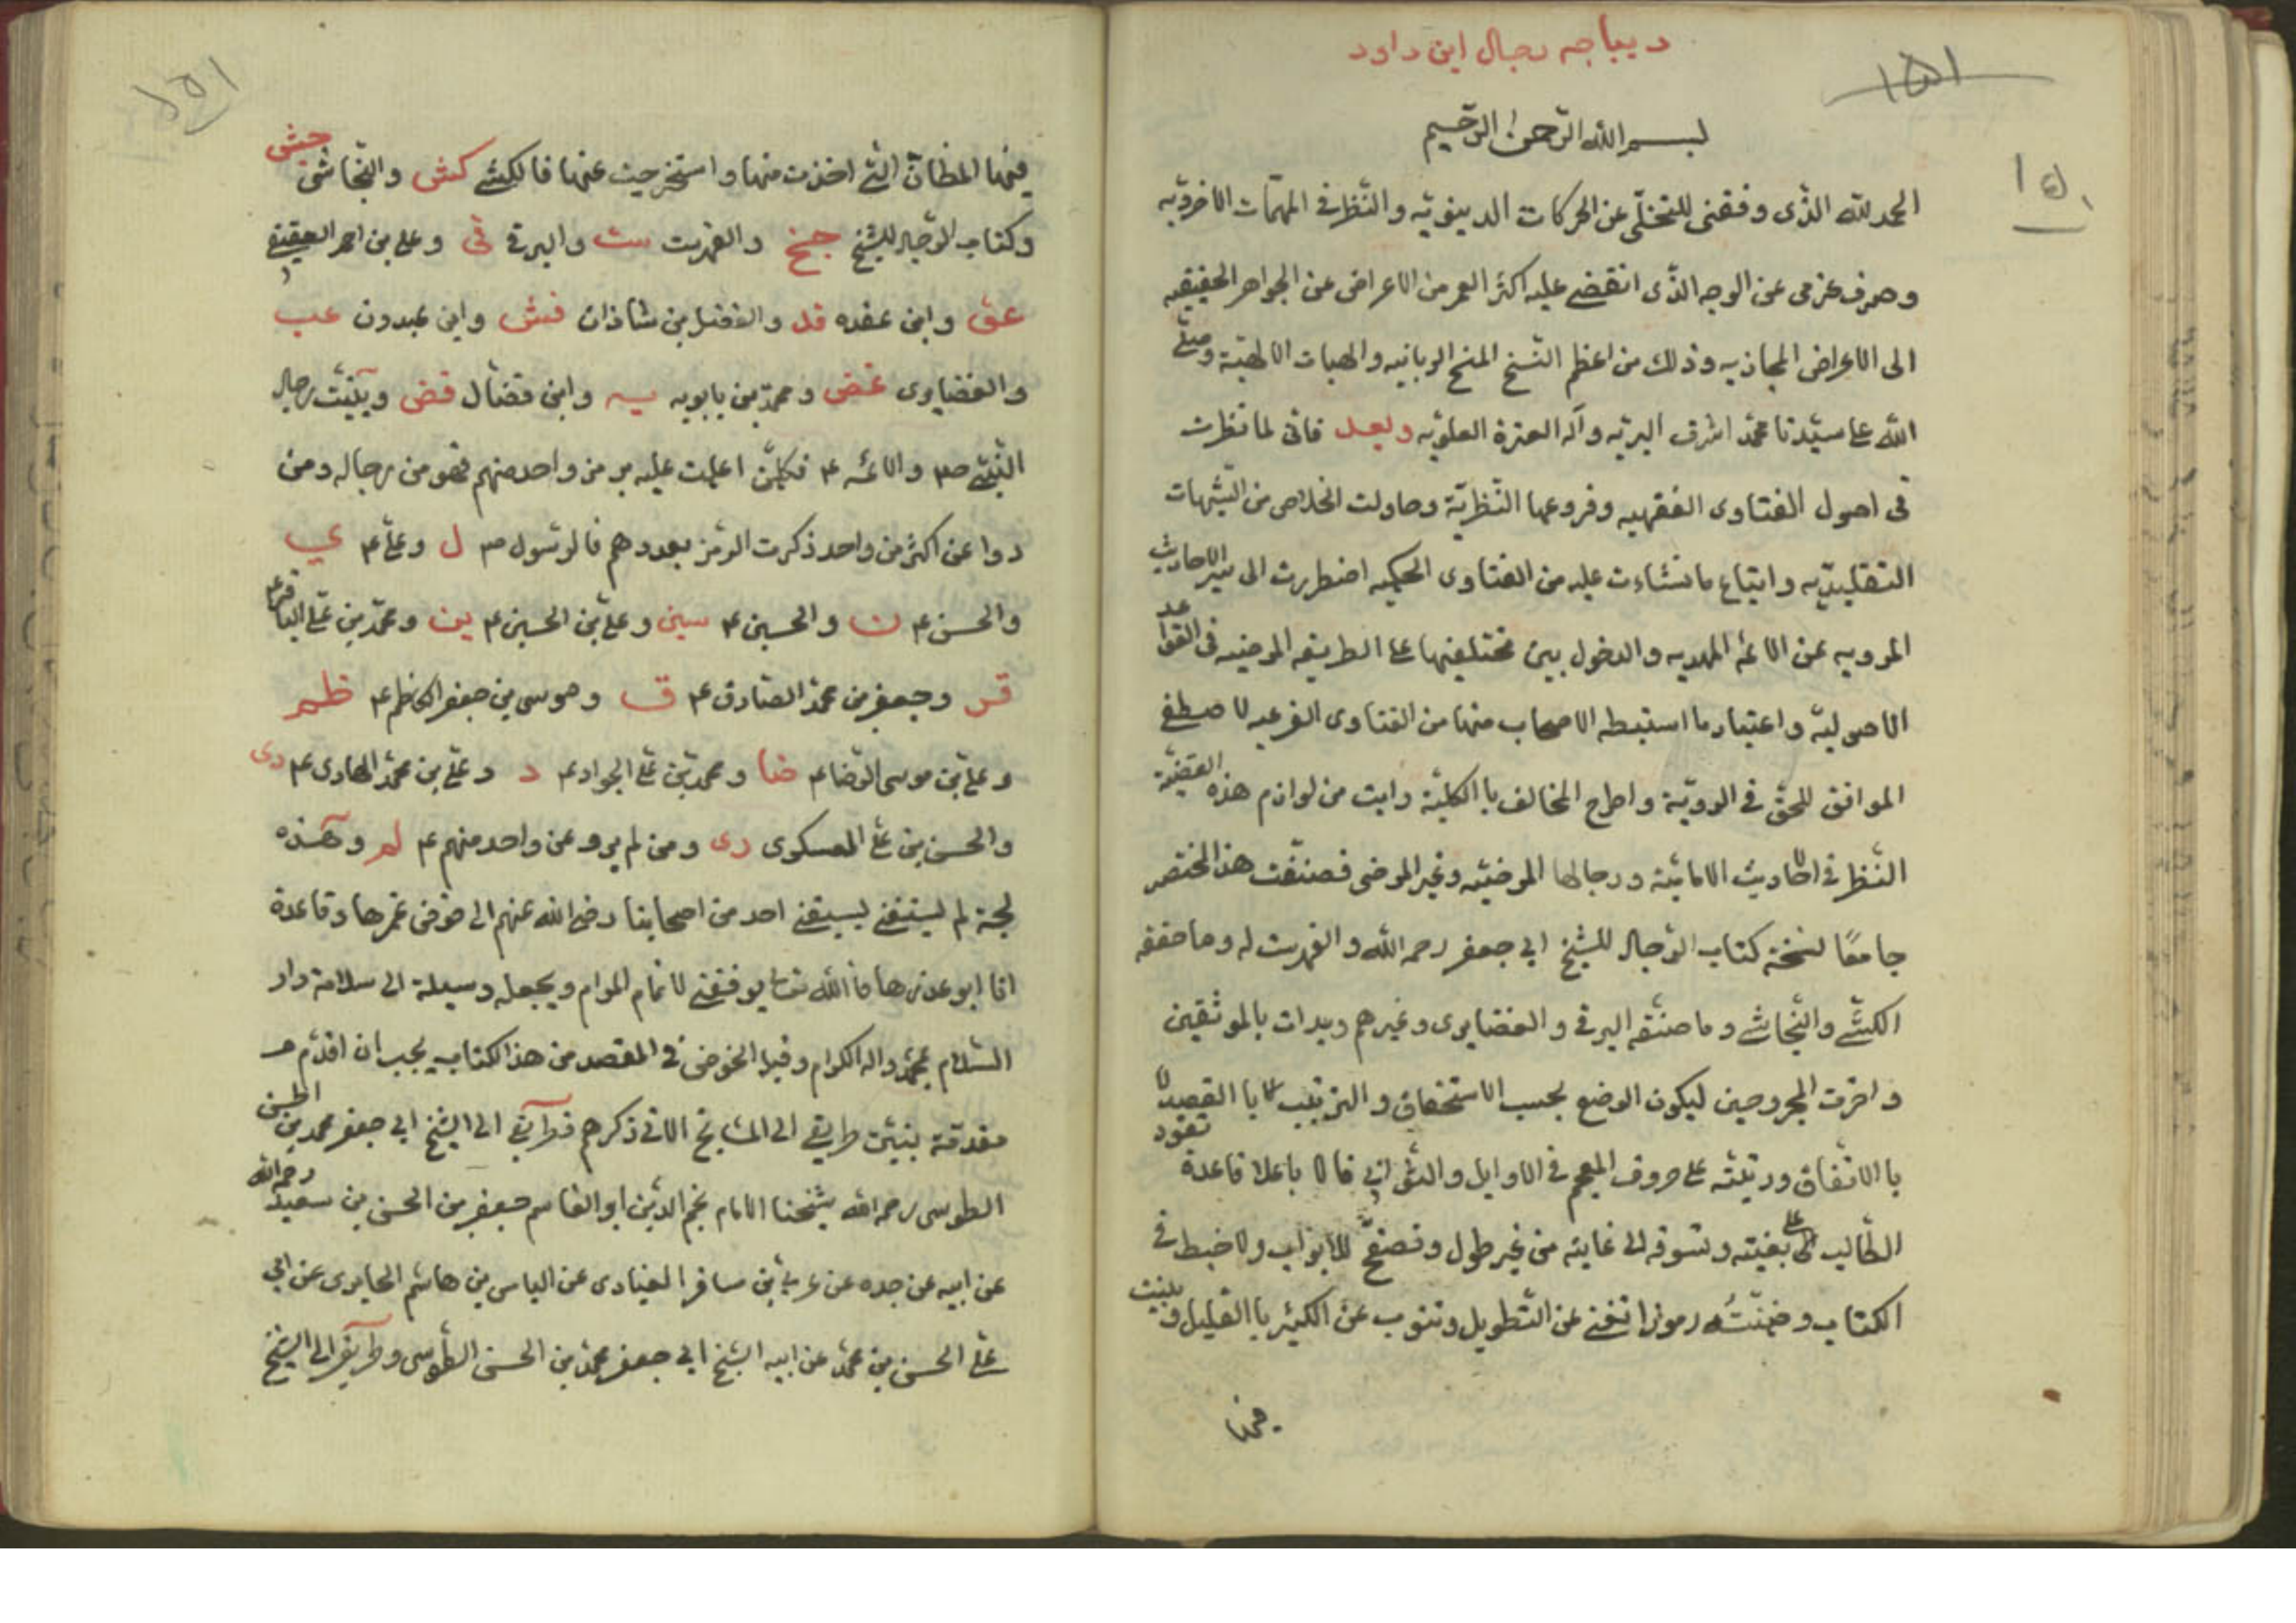 ديباجه رجال ابن داود
١٥١
١٥٠
بسم الله الرحمن الرحيم
الحمد لله الذى وفقنى للتخلّى عن الحركات الدينويّه والنظر فى المهمّات الاخرويه
وصرف عزمى عن الوجه الذّى انقضے عليه اكثر العمر من الاعراض عن الجواهر الحقيقيه
الى الاعراض المجازيه وذلك من اعظم النسخ المنح الربانيه والهبات الالهيّة وصلّے
الله على سيّدنا محمّد اشرف البريّه وآله العترة العلويّه وبعد فانّى لما نظرت
فى اصول الفتاوى الفقهيه وفروعها النّظريّة وحاولت الخلاص من الشبهات
التقليديّه واتباع ما نشاءت عليه من الفتاوى الحكيه اضطررت الى سير الاحاديث
المرويه عن الائمّه المهديه والدخول بين مختلفيها على الطريقه المرضيه فى القواعد
الاصوليّه واعتبار ما استبطه الاصحاب منها من الفتاوى الفرعيه لاصطفے
الموافق للحقّ فى الرويّة واطراح المخالف باالكليّة رايت من لوازم هذه القضيّة
النّظر فى الاحاديث الاماميّة ورجالها المرضيّه وغير المرضى فصنّفت هذا المختصر
جامعًا لنخبة كتاب الرّجال للشيخ ابى جعفر رحمه الله والفهرست له وما حققه
الكشّے والنّجاشے وما صنّفه البرقى والغضايرى وغيرهم وبدات بالموثقين
واخرت المجروحين ليكون الوضع بحسب الاستحقاق والترتيب لا باالقصد لا
باالاتّفاق ورتبته على حروف المعجم فى الاوايل والثّوانى فالا باعلا قاعدة تقود
الطّالب الى على بغيته وتسوقه الى غايته من غير طول وتصفّح للابواب ولا خبط فى
الكتاب وضمنّتُه رموزا تغنے عن التّطويل وتنوب عن الكثير باالقليل وبينت
فيها
١٥١
فيها المظانّ الّتى اخذت منها واستخرجت عنها فالكشّے كش والنّجاشى جش
وكتاب الرّجال للشيخ جخ والفهرست ست والبرقى قى وعلى بن احمد العقيقے
عق وابن عقده قد والفضل بن شاذان فش وابن عبدون عب
والغضايرى غض ومحمّد بن بابويه يه وابن فضّال فض وبيّنت رجال
النّبىّ ص٣ والائمّه ع فكلمّن اعلمت عليه برمز واحد منهم فهو من رجاله ومن
روا عن اكثر من واحد ذكرت الرمز بعددهم فالرسول ص٣ ل وعلىّ ع ى
والحسن ع ن والحسين ع سين وعلىّ بن الحسين ع ين ومحمّد بن على الباقر ع
قر وجعفر من محمّد الصّادق ع ق وموسى بن جعفر الكاظم ع ظم
وعلىّ بن موسى الرّضا ع ضا ومحمد بن على الجواد ع د وعلىّ بن محمّد الهادى ع دى
والحسن بن على العسكرى رى ومن لم يرو عن واحد منهم ع لم وهذه
لجة لم يسبقنے احد من اصحابنا رضى الله عنهم الى خوض غمرها وقاعدة
انا ابو عذرها فالله تعالى يوفقنے لاتمام المرام ويجعله وسيلة الى سلامة دار
السّلام بمحمّد واله الكرام وقبل الخوض فى المقصد من هذا الكتاب يجب ان اقدّم
مقدمة بنيت طريقے الى المشايخ الاتى ذكرهم فطريقے الى الشيخ ابى جعفر محمد بن الحسن
الطوسى رحمه الله شيخنا الامام نجم الدّين ابو القاسم جعفر من الحسن بن سعيد رحمه الله
عن ابيه عن جده عن عربىّ بن مسافر العبادى عن الياس بن هاشم الحايرى عن ابى
علىّ الحسن بن محمّد عن ابيه الشيخ ابى جعفر محمّد بن الحسن الطوسى وطريقے الى الشيخ